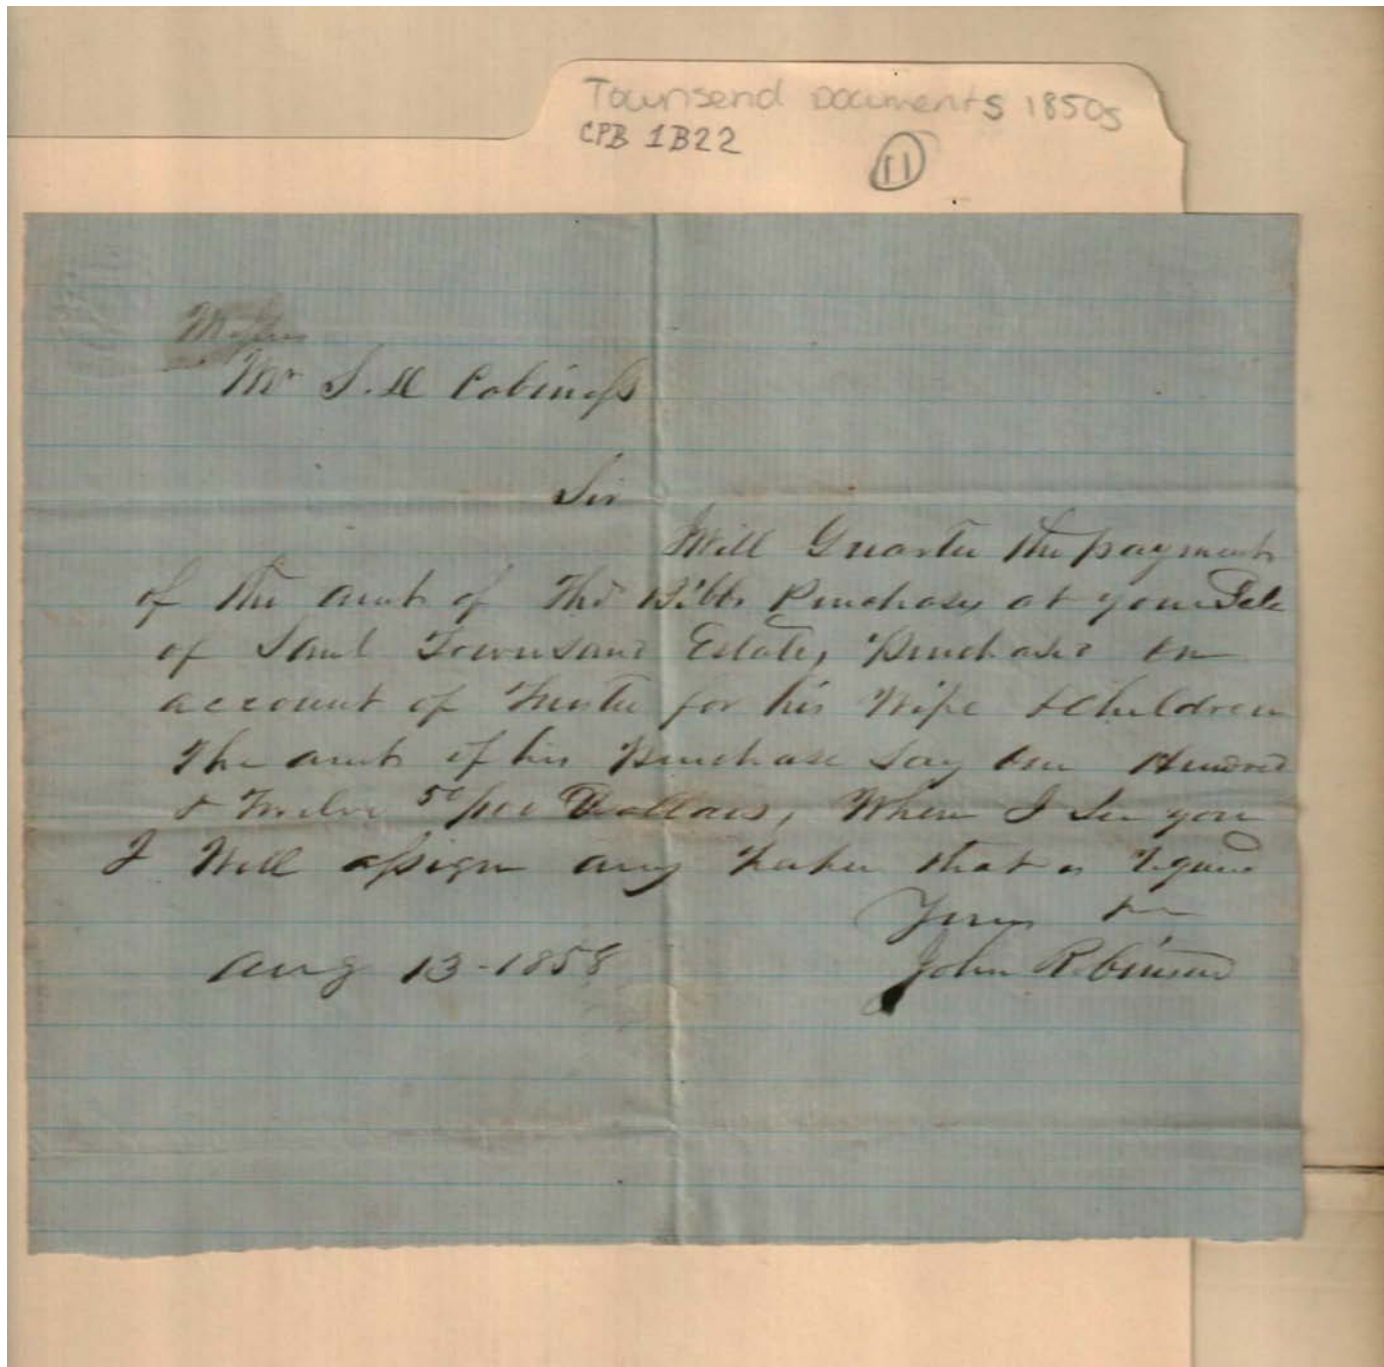 Townsend Documents 1850s
CPB 1B22
11
Mr S. D Cabiness
Sir
Will Guarter the payment
of the amt of Tho Bibb Purchases at your Sale
of Saml Townsand Estate, Purchased on
account of Trustee for his Wife & Children
The amt of his Purchase Say one Hundred
& Twelve 50/100 Dollars, When I See you
I Will assign any Paper that is
Yours
John Robinson
Aug 13 - 1858